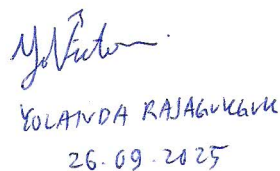 YOLANDA RAJAGUKGUK
26.09.2025